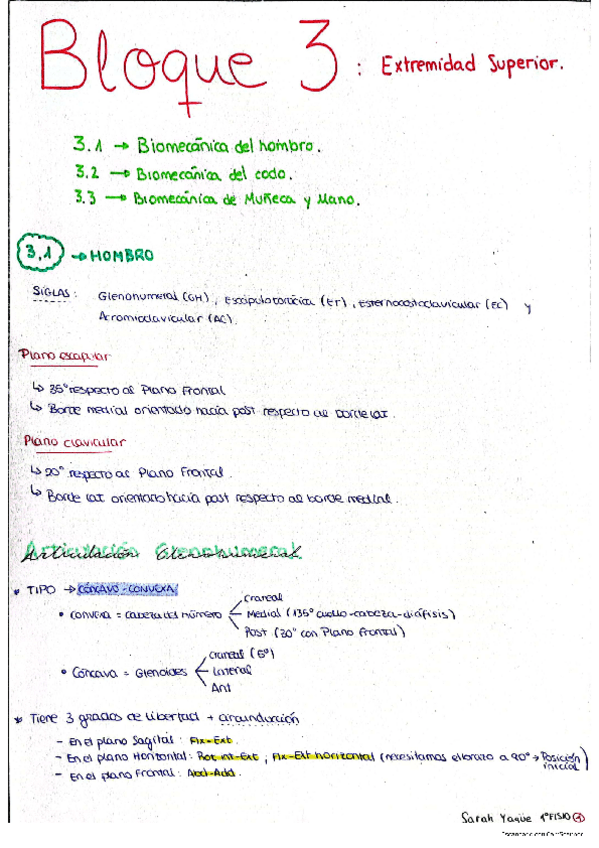 Bloque 3 : Extremidad Superior.
3.1 → Biomecánica del hombro.
3.2 → Biomecánica del codo.
3.3 → Biomecánica de Muñeca y Mano.
3.1 → HOMBRO
SIGLAS: Glenohumeral (GH), Escapulotorácica (ET), Esternocostoclavicular (EC) y
Acromioclavicular (AC).
Plano escapular
↳ 35° respecto al Plano Frontal
↳ Borde medial orientado hacia post respecto al borde lat.
Plano clavicular
↳ 20° respecto al Plano Frontal.
↳ Borde lat orientado hacia post respecto al borde medial.
Articulación Glenohumeral
* TIPO → CÓNCAVO-CONVEXA
• Convexa = cabeza del húmero
Craneal
Medial (135° cuello-cabeza-diáfisis)
Post (30° con Plano Frontal)
• Cóncava = Glenoides
Craneal (5°)
Lateral
Ant
* Tiene 3 grados de libertad + circunducción
- En el plano Sagital: Flx-Ext.
- En el plano Horizontal: Rot int-Ext, Flx-Ext horizontal (necesitamos el brazo a 90° → Posición inicial)
- En el plano Frontal: Abd-Add.
Sarah Yagüe 1°FISIO 1
Escaneado con CamScanner